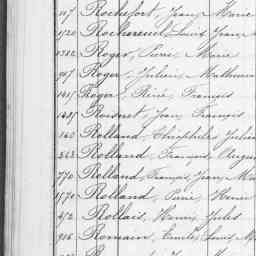 117 Rochefort, Jean Marie
1720 Rochereuil, Louis Jean
1382 Roger, Pierre Marie
907 Roger, Julien Mathurin
1417 Roger, René, François
1485 Rousset, Jean François
140 Rolland, Théophile Julien
563 Rolland, François, Augus
770 Rolland, François, Jean, M
1570 Rolland, Pierre, Henri
452 Rollais, Henri, Jules
906 Romain, Emile, Louis, M